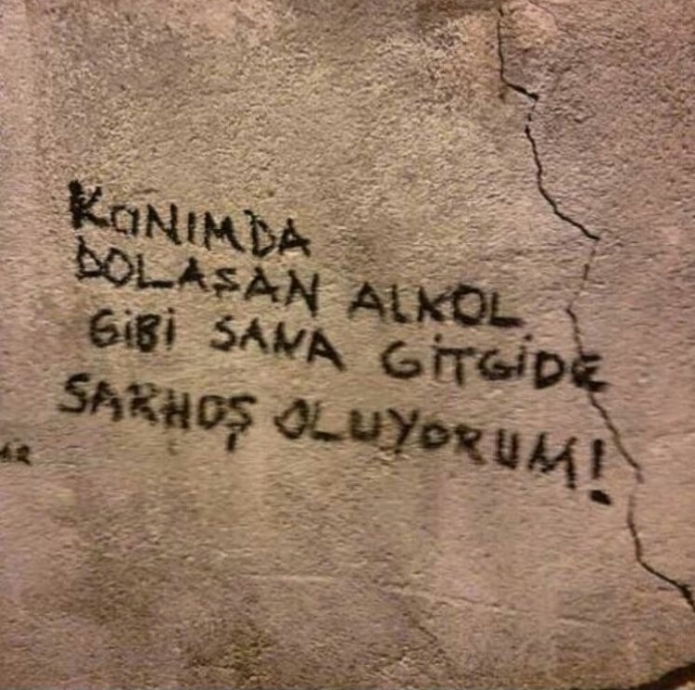 KaNIMDA
DOLAŞAN ALKOL
GiBi SANA GiTGiDE
SARHOŞ OLUYORUM!